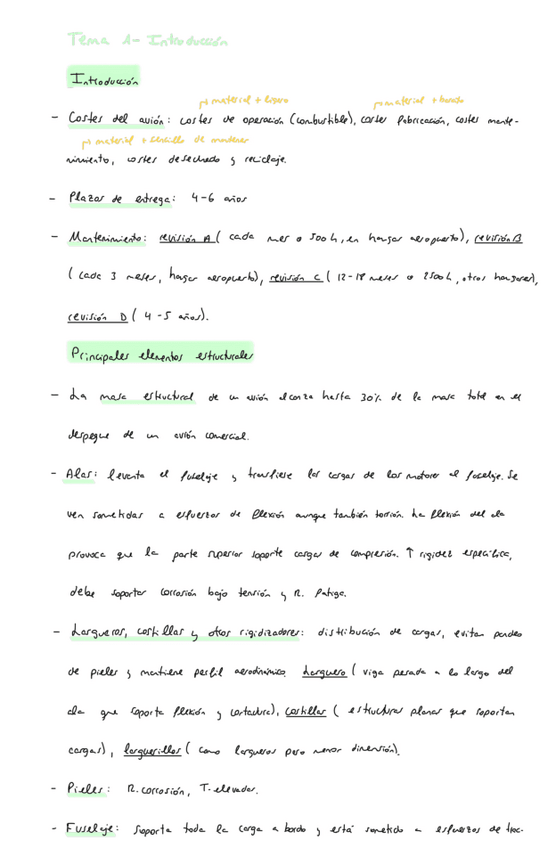 Tema 1- Introducción
Introducción
↳ material + ligero ↳ material + barato
- Costes del avión: costes de operación (combustible), costes fabricación, costes mante-
↳ material + sencillo de mantener
nimiento, costes desechado y reciclaje.
- Plazos de entrega: 4-6 años
- Mantenimiento: revisión A ( cada mes o 500h, en hangar aeropuerto), revisión B
( cada 3 meses, hangar aeropuerto), revisión C ( 12-18 meses o 2500h, otros hangares),
revisión D ( 4-5 años).
Principales elementos estructurales
- La masa estructural de un avión alcanza hasta 30% de la masa total en el
despegue de un avión comercial.
- Alas: levanta el fuselaje y transfiere las cargas de los motores al fuselaje. Se
ven sometidas a esfuerzos de flexión aunque también torsión. La flexión del ala
provoca que la parte superior soporte cargas de compresión. ↑ rigidez específica,
debe soportar corrosión bajo tensión y R. fatiga.
- Largueros, costillas y otros rigidizadores: distribución de cargas, evitan pandeo
de pieles y mantiene perfil aerodinámico. Larguero ( viga pesada a lo largo del
ala que soporta flexión y cortadura), costillas ( estructuras planas que soportan
cargas), larguerillos ( como largueros pero menor dimensión).
- Pieles: R. corrosión, T. elevadas.
- Fuselaje: soporta toda la carga a bordo y está sometido a esfuerzos de trac-